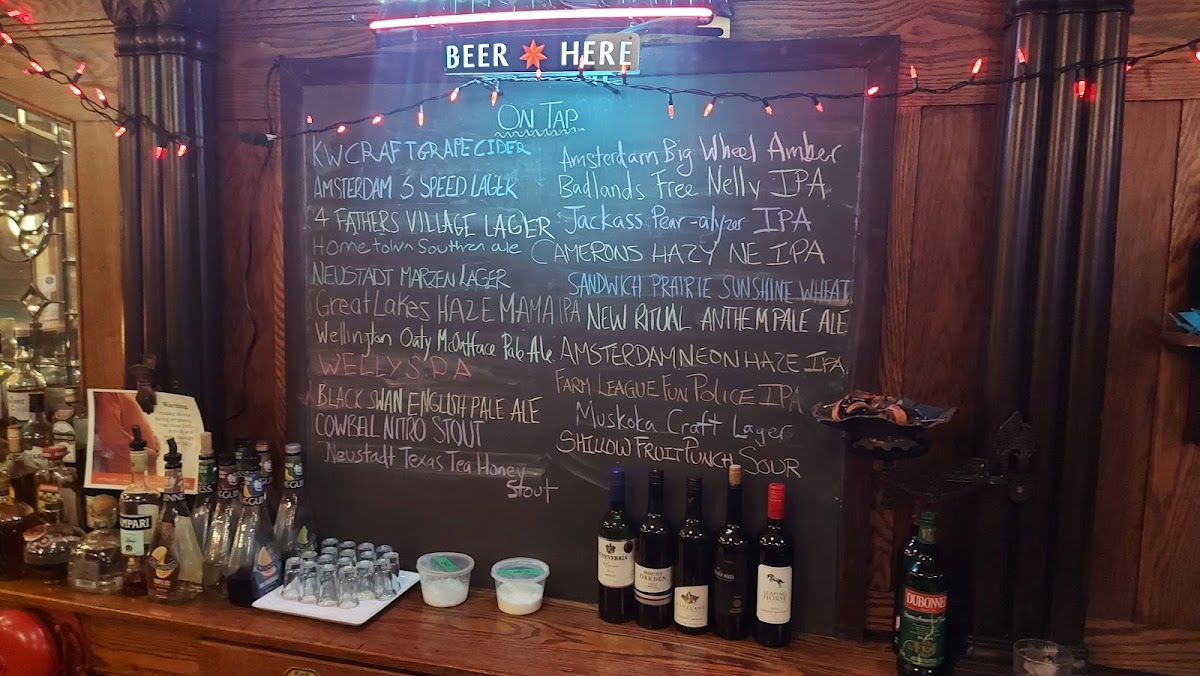 BEER HERE
ON TAP
KW CRAFT GRAPE CIDER
AMSTERDAM 3 SPEED LAGER
4 FATHERS VILLAGE LAGER
Hometown Southern ale
NEUSTADT MARZEN LAGER
Great Lakes HAZE MAMA IPA
Wellington Oaty McOatface Pale Ale
WELLY SPA
BLACK SWAN ENGLISH PALE ALE
COWBELL NITRO STOUT
Neustadt Texas Tea Honey
Stout
Amsterdam Big Wheel Amber
Badlands Free Nelly IPA
Jackass Pear-alyzer IPA
CAMERONS HAZY NE IPA
SANDWICH PRAIRIE SUNSHINE WHEAT
NEW RITUAL ANTHEM PALE ALE
AMSTERDAM NEON HAZE IPA
FARM LEAGUE FUN POLICE IPA
Muskoka Craft Lager
SHILLOW FRUIT PUNCH SOUR
Warning.
CAMPARI
DUBONNET